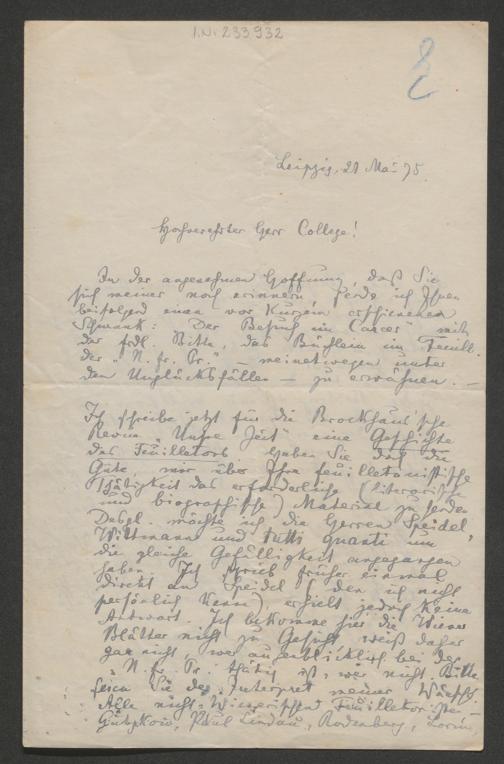 I.N. 233932
Leipzig, 21 Mai 75.
Hochverehrter Herr College!
In der angenehmen Hoffnung, daß Sie
sich meiner noch erinnern, sende ich Ihnen
beifolgend einen vor Kurzem erschienenen
Schwank: "Der Besuch im Carcer" mit
der frdl. Bitte, das Büchlein im Feuill.
der "N. fr. Pr." – meinetwegen unter
den Unglücksfällen – zu erwähnen. –
Ich schreibe jetzt für die Brockhaus'sche
Revue "Unsre Zeit" eine Geschichte
des Feuilletons. Haben Sie doch die
Güte, mir über Ihre feuilletonistische
Thätigkeit das erforderliche (literarische
und biographische) Material zu senden.
Desgl. möchte ich die Herren Speidel,
Wittmann und tutti quanti um
die gleiche Gefälligkeit angegangen
haben. Ich schrieb früher einmal
direkt an Speidel (den ich nicht
persönlich kenne), erhielt jedoch keine
Antwort. Ich bekomme hier die Wiener
Blätter nicht zu Gesicht, weiß daher
gar nicht, wer augenblicklich bei der
"N. fr. Pr." thätig ist, wer nicht. Bitte
seien Sie der Interpret meiner Wünsche.
Alle nicht-Wienerischen Feuilletonisten –
Gutzkow, Paul Lindau, Rodenberg, Lorm